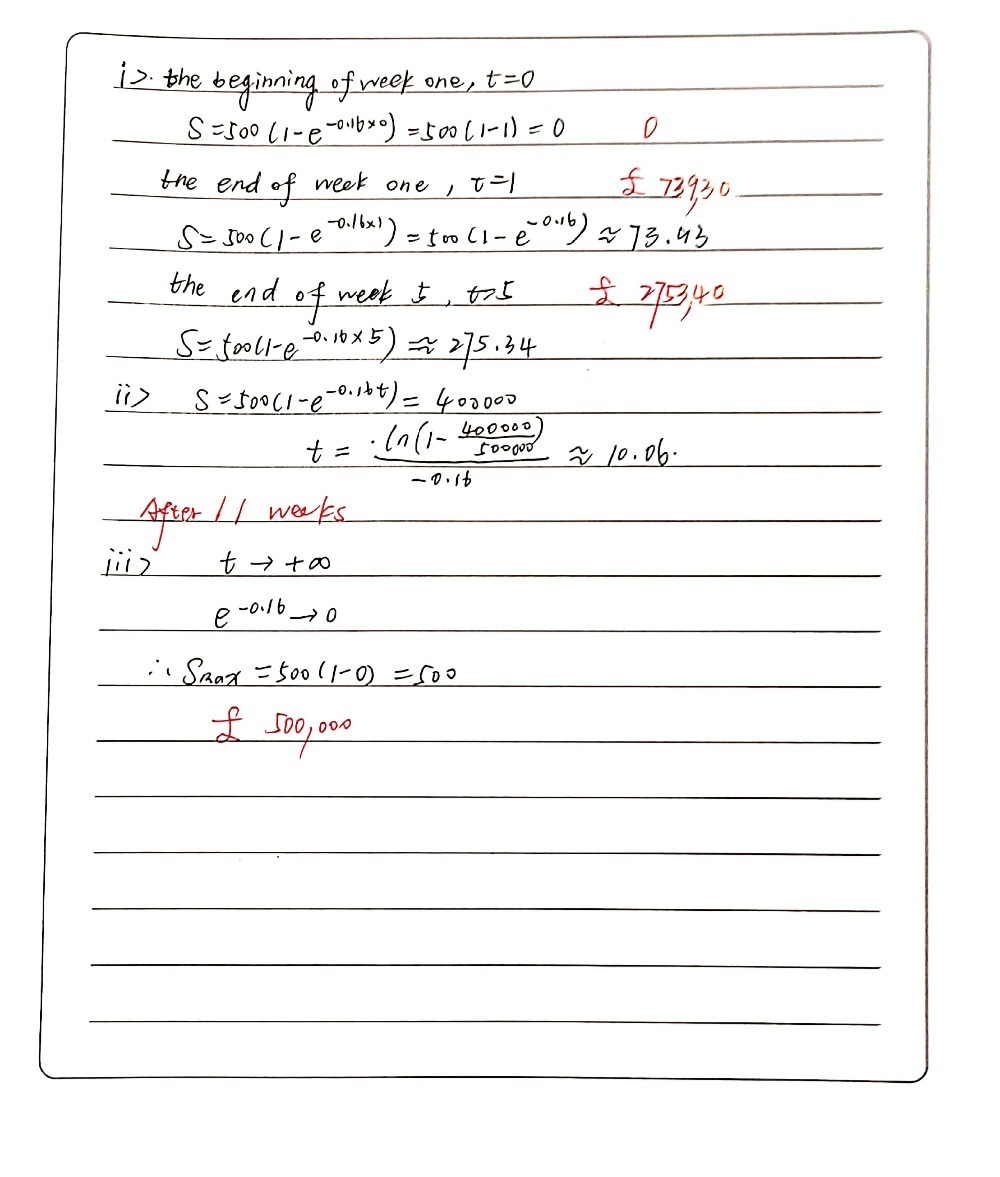 i>. the beginning of week one, t=0
S=500(1-e^{-0.16×0})=500(1-1)=0 0
the end of week one, t=1 £ 73930
S=500(1-e^{-0.16×1})=500(1-e^{-0.16})≈73.93
the end of week 5, t=5 £ 275340
S=500(1-e^{-0.16×5})≈275.34
ii> S=500(1-e^{-0.16t})=400000
t = ln(1-400000/500000)/-0.16 ≈ 10.06.
After 11 weeks
iii> t→+∞
e^{-0.16}→0
∴ Smax=500(1-0)=500
£ 500,000